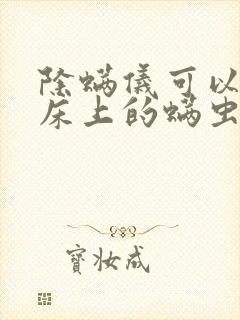 除螨儀可以
床上的螨虫
寶妆成